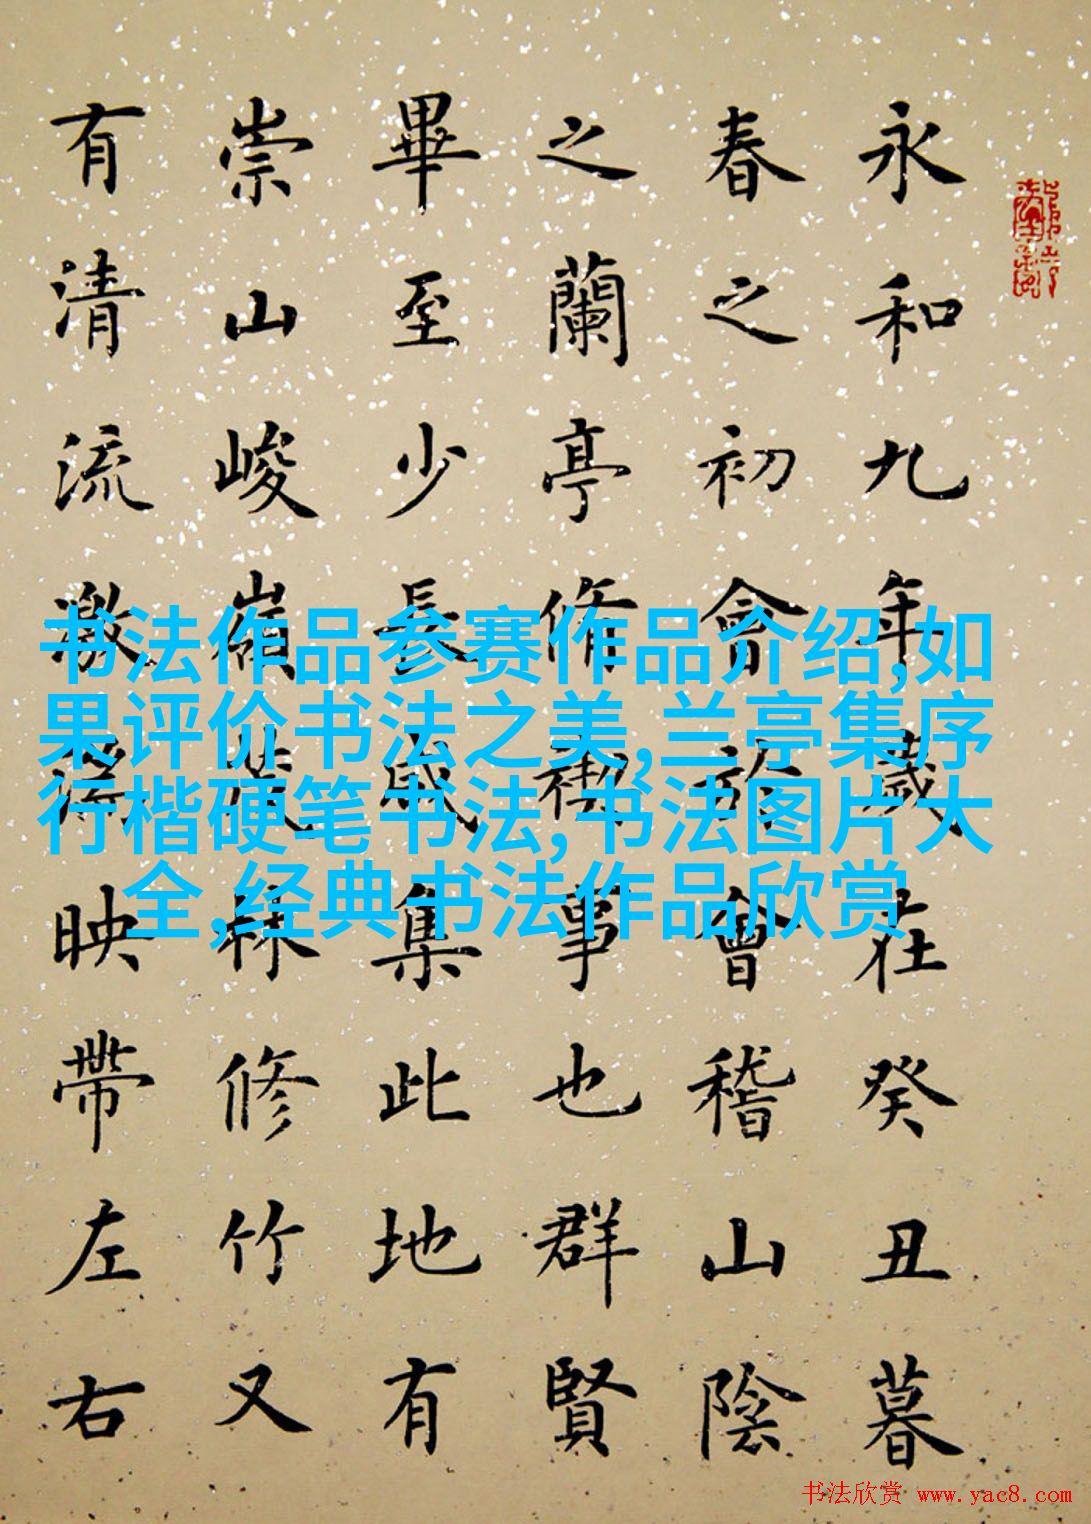 永和九年歲在癸丑暮
春之初會於會稽山陰
之蘭亭脩禊事也群賢
畢至少長咸集此地有
崇山峻嶺茂林修竹又
有清流激湍映帶左右
书法作品参赛作品介绍,如
果评价书法之美,兰亭集序
行楷硬笔书法,书法图片大
全,经典书法作品欣赏
书法欣赏 www.yac8.com